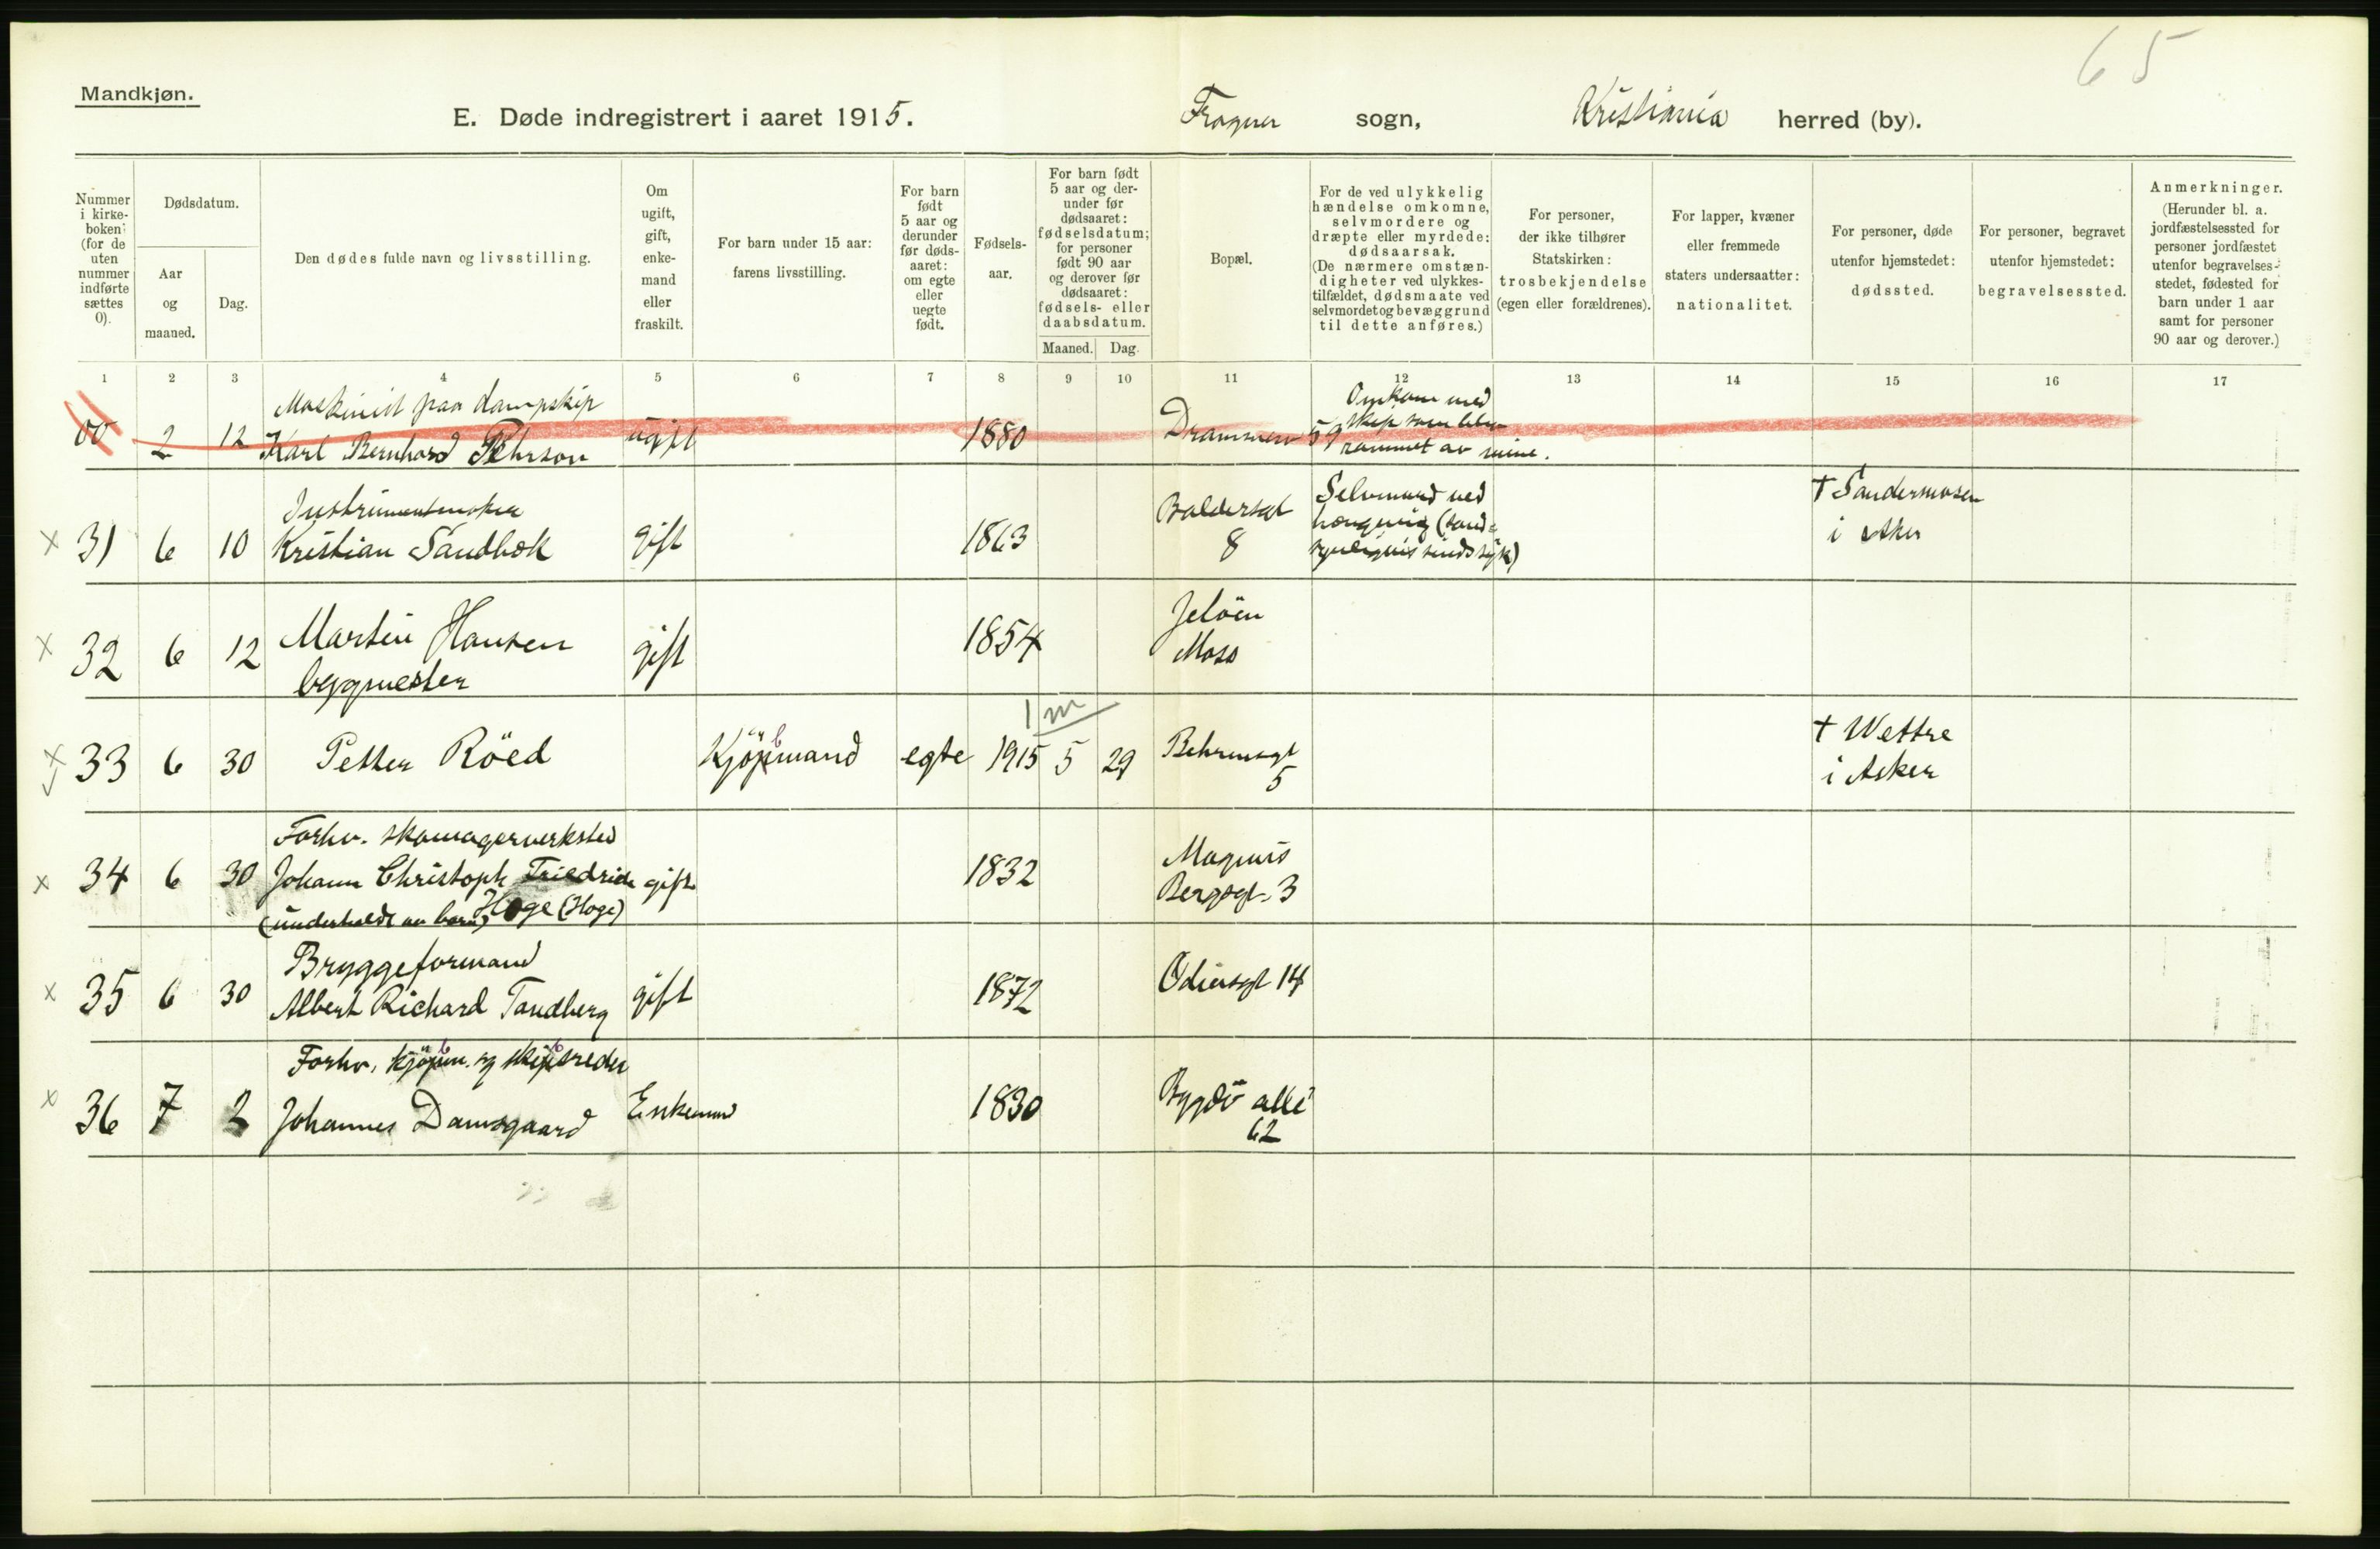 65
Mandkjøn.
E. Døde indregistrert i aaret 1915. Frogner sogn, Kristiania herred (by).
Nummer i kirke-boken: (for de uten nummer indførte sættes 0).
Dødsdatum.
Aar og maaned.
Dag.
Den dødes fulde navn og livsstilling.
Om ugift, gift, enke-mand eller fraskilt.
For barn under 15 aar: farens livsstilling.
For barn født 5 aar og derunder før døds-aaret: om egte eller uegte født.
Fødsels-aar.
For barn født 5 aar og der-under før dødsaaret: fødselsdatum; for personer født 90 aar og derover før dødsaaret: fødsels- eller daabsdatum.
Maaned. Dag.
Bopæl.
For de ved ulykkelig hændelse omkomne, selvmordere og dræpte eller myrdede: dødsaarsak. (De nærmere omstæn-digheter ved ulykkes-tilfældet, dødsmaate ved selvmordet og bevæggrund til dette anføres.)
For personer, der ikke tilhører Statskirken: trosbekjendelse (egen eller forældrenes).
For lapper, kvæner eller fremmede staters undersaatter: nationalitet.
For personer, døde utenfor hjemstedet: dødssted.
For personer, begravet utenfor hjemstedet: begravelsessted.
Anmerkninger. (Herunder bl. a. jordfæstelsessted for personer jordfæstet utenfor begravelses-stedet, fødested for barn under 1 aar samt for personer 90 aar og derover.)
1 2 3 4 5 6 7 8 9 10 11 12 13 14 15 16 17
Maskinist paa dampskip
2 12 Karl Bernhard Pehrson ugift 1880 Drammen
Omkom med
skip som blev
rammet av mine.
Instrumentmaker
x 31 6 10 Kristian Sandbæk gift 1863 Baldersgt
8
Selvmord ved
hængning (sand-
synligvis sindssyk)
† Sandermosen
i Aker
x 32 6 12 Martin Hansen gift 1854 Jelöen
bygmester Moss
1 m
x 33 6 30 Petter Röed Kjöpmand egte 1915 5 29 Behrensgt
5
† Wettre
i Asker
Forhv. skomagerverksted
x 34 6 30 Johann Christoph Friedrich gift 1832 Magnus
(underholdt av barn) Hoge (Hoge) Bergsgt. 3
Bryggeformand
x 35 6 30 Albert Richard Tandberg gift 1872 Odinsgt 14
Forhv. kjöpm. og skipsreder
x 36 7 2 Johannes Damsgaard Enkemand 1830 Bygdö allé
62